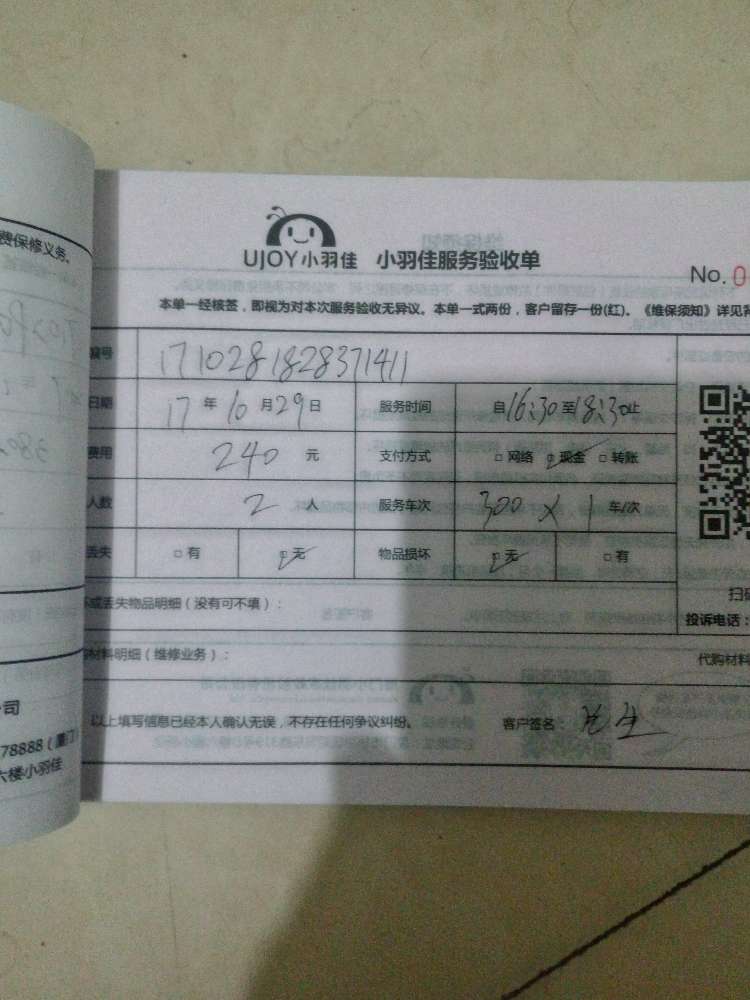 费保修义务。
UJOY小羽佳 小羽佳服务验收单
No. 0
本单一经核签，即视为对本次服务验收无异议。本单一式两份，客户留存一份(红)。《维保须知》详见背
编号 1710281828371411
日期 17 年 10 月 29 日 服务时间 自 16:30 至 18:30 止
费用 240 元 支付方式 □ 网络 □ 现金 □ 转账
人数 2 人 服务车次 300 × 1 车/次
丢失 □ 有 □ 无 物品损坏 □ 无 □ 有
坏或丢失物品明细（没有可不填）： 扫码
投诉电话：
材料明细（维修业务）： 代购材料
以上填写信息已经本人确认无误，不存在任何争议纠纷。 客户签名：
公司
78888（厦门
六楼小羽佳
380